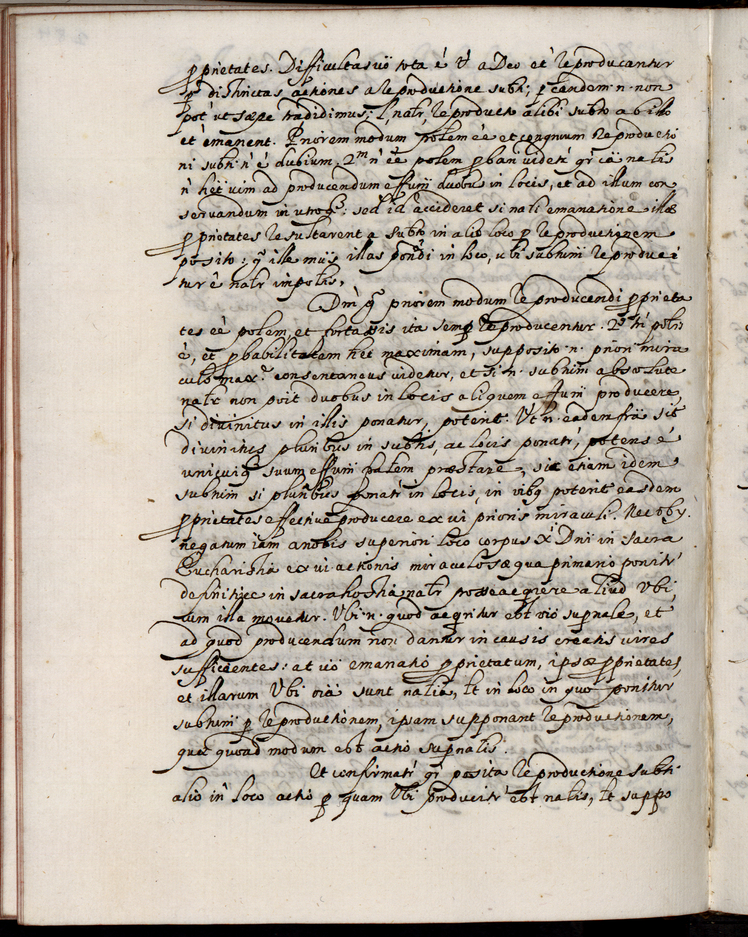 pprietates. Difficultas uö tota é ù a Deo et reproducantur
p distinctas actiones a reproductione subti; p eandem .n. non
pot ut sæpe tradidimus; l, natr, reproducto alibi subto ab illo
et emanent. Priorem modum polem eé et congruum reproductio
ni subti n é dubium. 2m n eé polem pbari videtr qr cä natis
n het uim ad producendum effum duobus in locis, et ad illum con
servandum in utroq; sed id accideret si nati emanatione illæ
pprietates resultarent a subto in alio loco p reproductionem
posito: q ille mus illas pondi in loco, ubi subtum reproduci
tur é natr impolis.
Dm q priorem modum reproducendi pprieta
tes eé polem, et fortassis ita semp reproducentur. 2o tn polis
é, et pbabilitatem het maximam, supposito .n. priori mira
culo maxe consentaneus videtur, et si .n. subtum absolute
natr non poit duobus in locis aliquem effum producere,
si divinitus in illis ponatur, poterit. Ut .n. eadem fra sit
divinitus pluribus in subtis, ac locis ponatr, potens é
unicuiq suum effum falem præstare, sic etiam idem
subtum si pluribus ponatr in locis, in uibq poterit easdem
pprietates effective producere ex ui prioris miraculi. Nec obi.
negatum iam a nobis superiori loco corpus Xi Dni in sacra
Eucharistia ex ui actionis miraculosæ qua primario ponitr
definitive in sacra hostia natr posse acqrere aliud Ubi,
cum illa movetur. Ubi .n. quod acqritur est oio supnale, et
ad quod producendum non dantur in causis creatis uires
sufficientes: at uö emanatio pprietatum, ipsæ pprietates,
et illarum Ubi oia sunt natia, lt in loco in quo ponitur
subtum p reproductionem, ipsam supponant reproductionem,
quæ quoad modum est actio supnalis.
Et confirmatr qr posita reproductione subti
alio in loco actio p quam Ubi producitr est natis, lt suppo